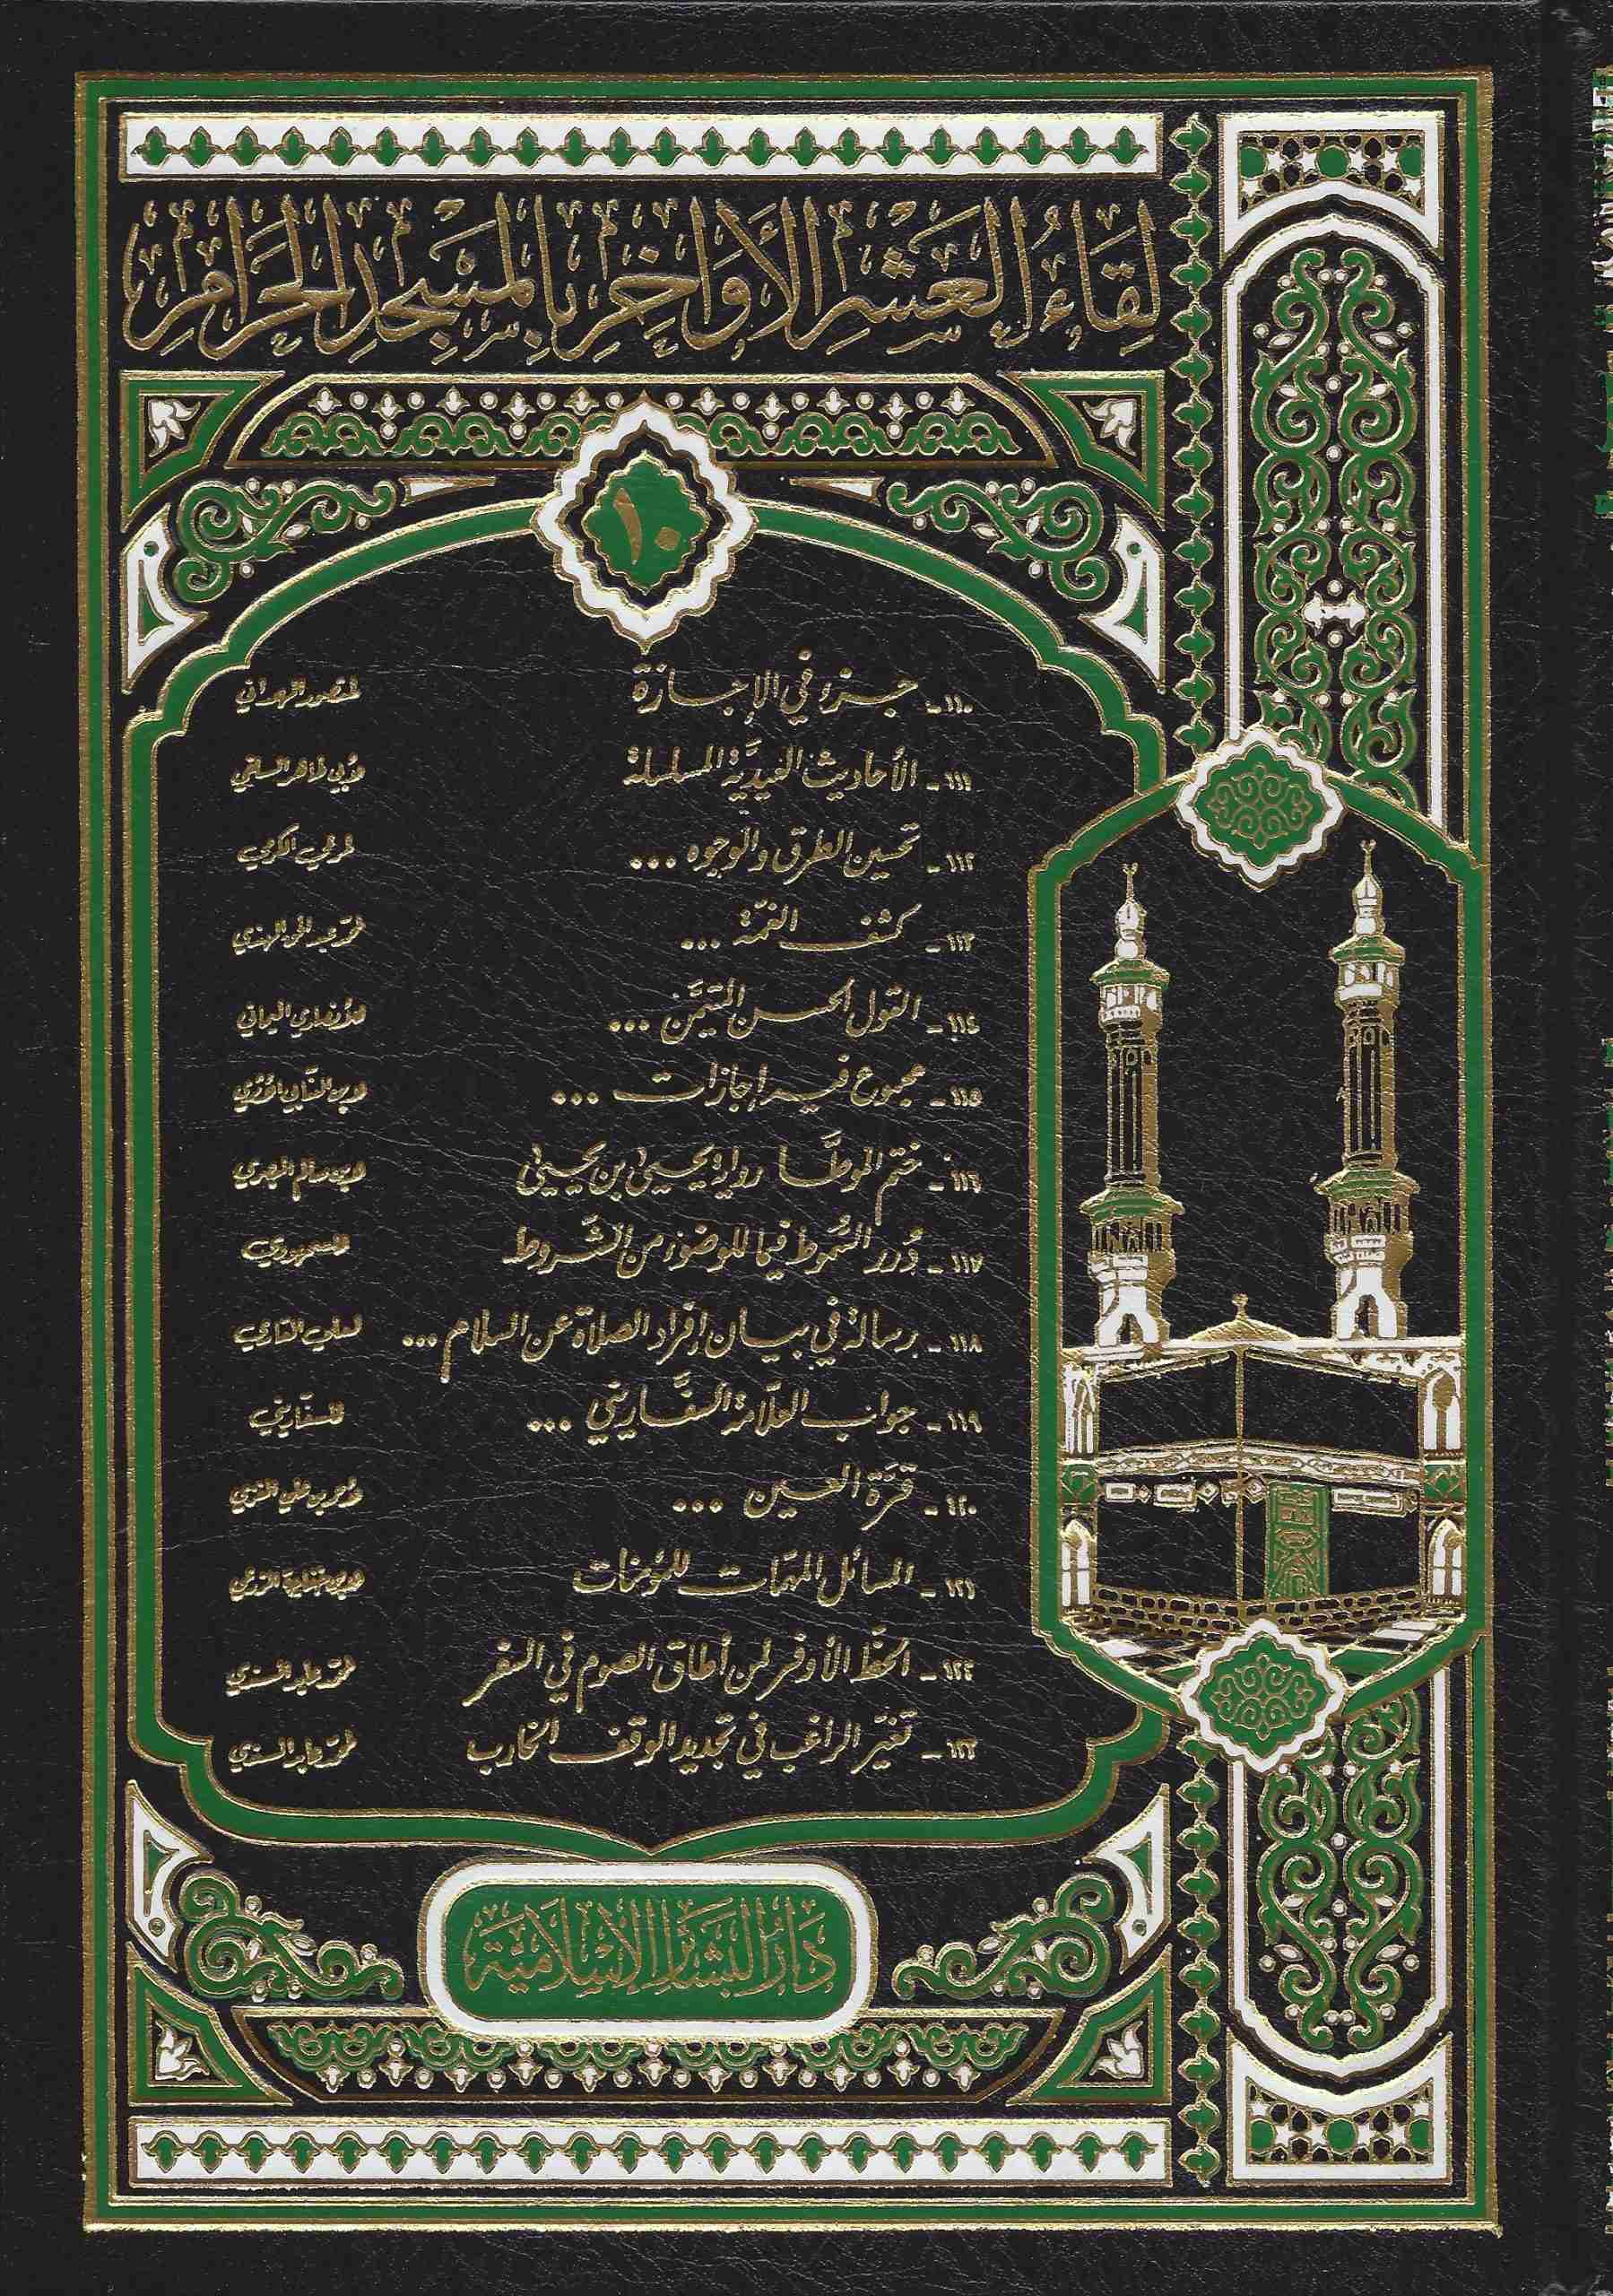 لِقَاءُ العَشْرِ الأَوَاخِرِ بِالمَسْجِدِ الحَرَامِ
١٠
١١٠ - جزء في الإجازة لمنصور الهمداني
١١١ - الأحاديث العيديَّة المسلسلة لأبي طاهر السلفي
١١٢ - تحسين الطرق والوجوه ... لمرعي الكرمي
١١٣ - كشف الغمّة ... لمحمد عبد الحي الهندي
١١٤ - القول الحسن المتيمَّن ... للأنصاري اليماني
١١٥ - مجموع فيه إجازات ...
١١٦ - ختم الموطَّأ رواية يحيىٰ بن يحيىٰ لابن سالم البصري
١١٧ - دُرر السُّموط فيما للوضوء من الشّروط للسمهودي
١١٨ - رسالة في بيان إفراد الصلاة عن السلام ... لعلي القاري
١١٩ - جواب العلّامة السفَّاريني ... للسفّاريني
١٢٠ - قرّة العين ... لأحمد بن علي
١٢١ - المسائل المهمّات للمؤمنات
١٢٢ - الحظّ الأوفر لمن أطاق الصوم في السفر لمحمد عابد السندي
١٢٣ - تغيّر الراغب في تجديد الوقف الخارب لمحمد عابد السندي
دَارُ البَشَائِرِ الإِسْلَامِيَّة